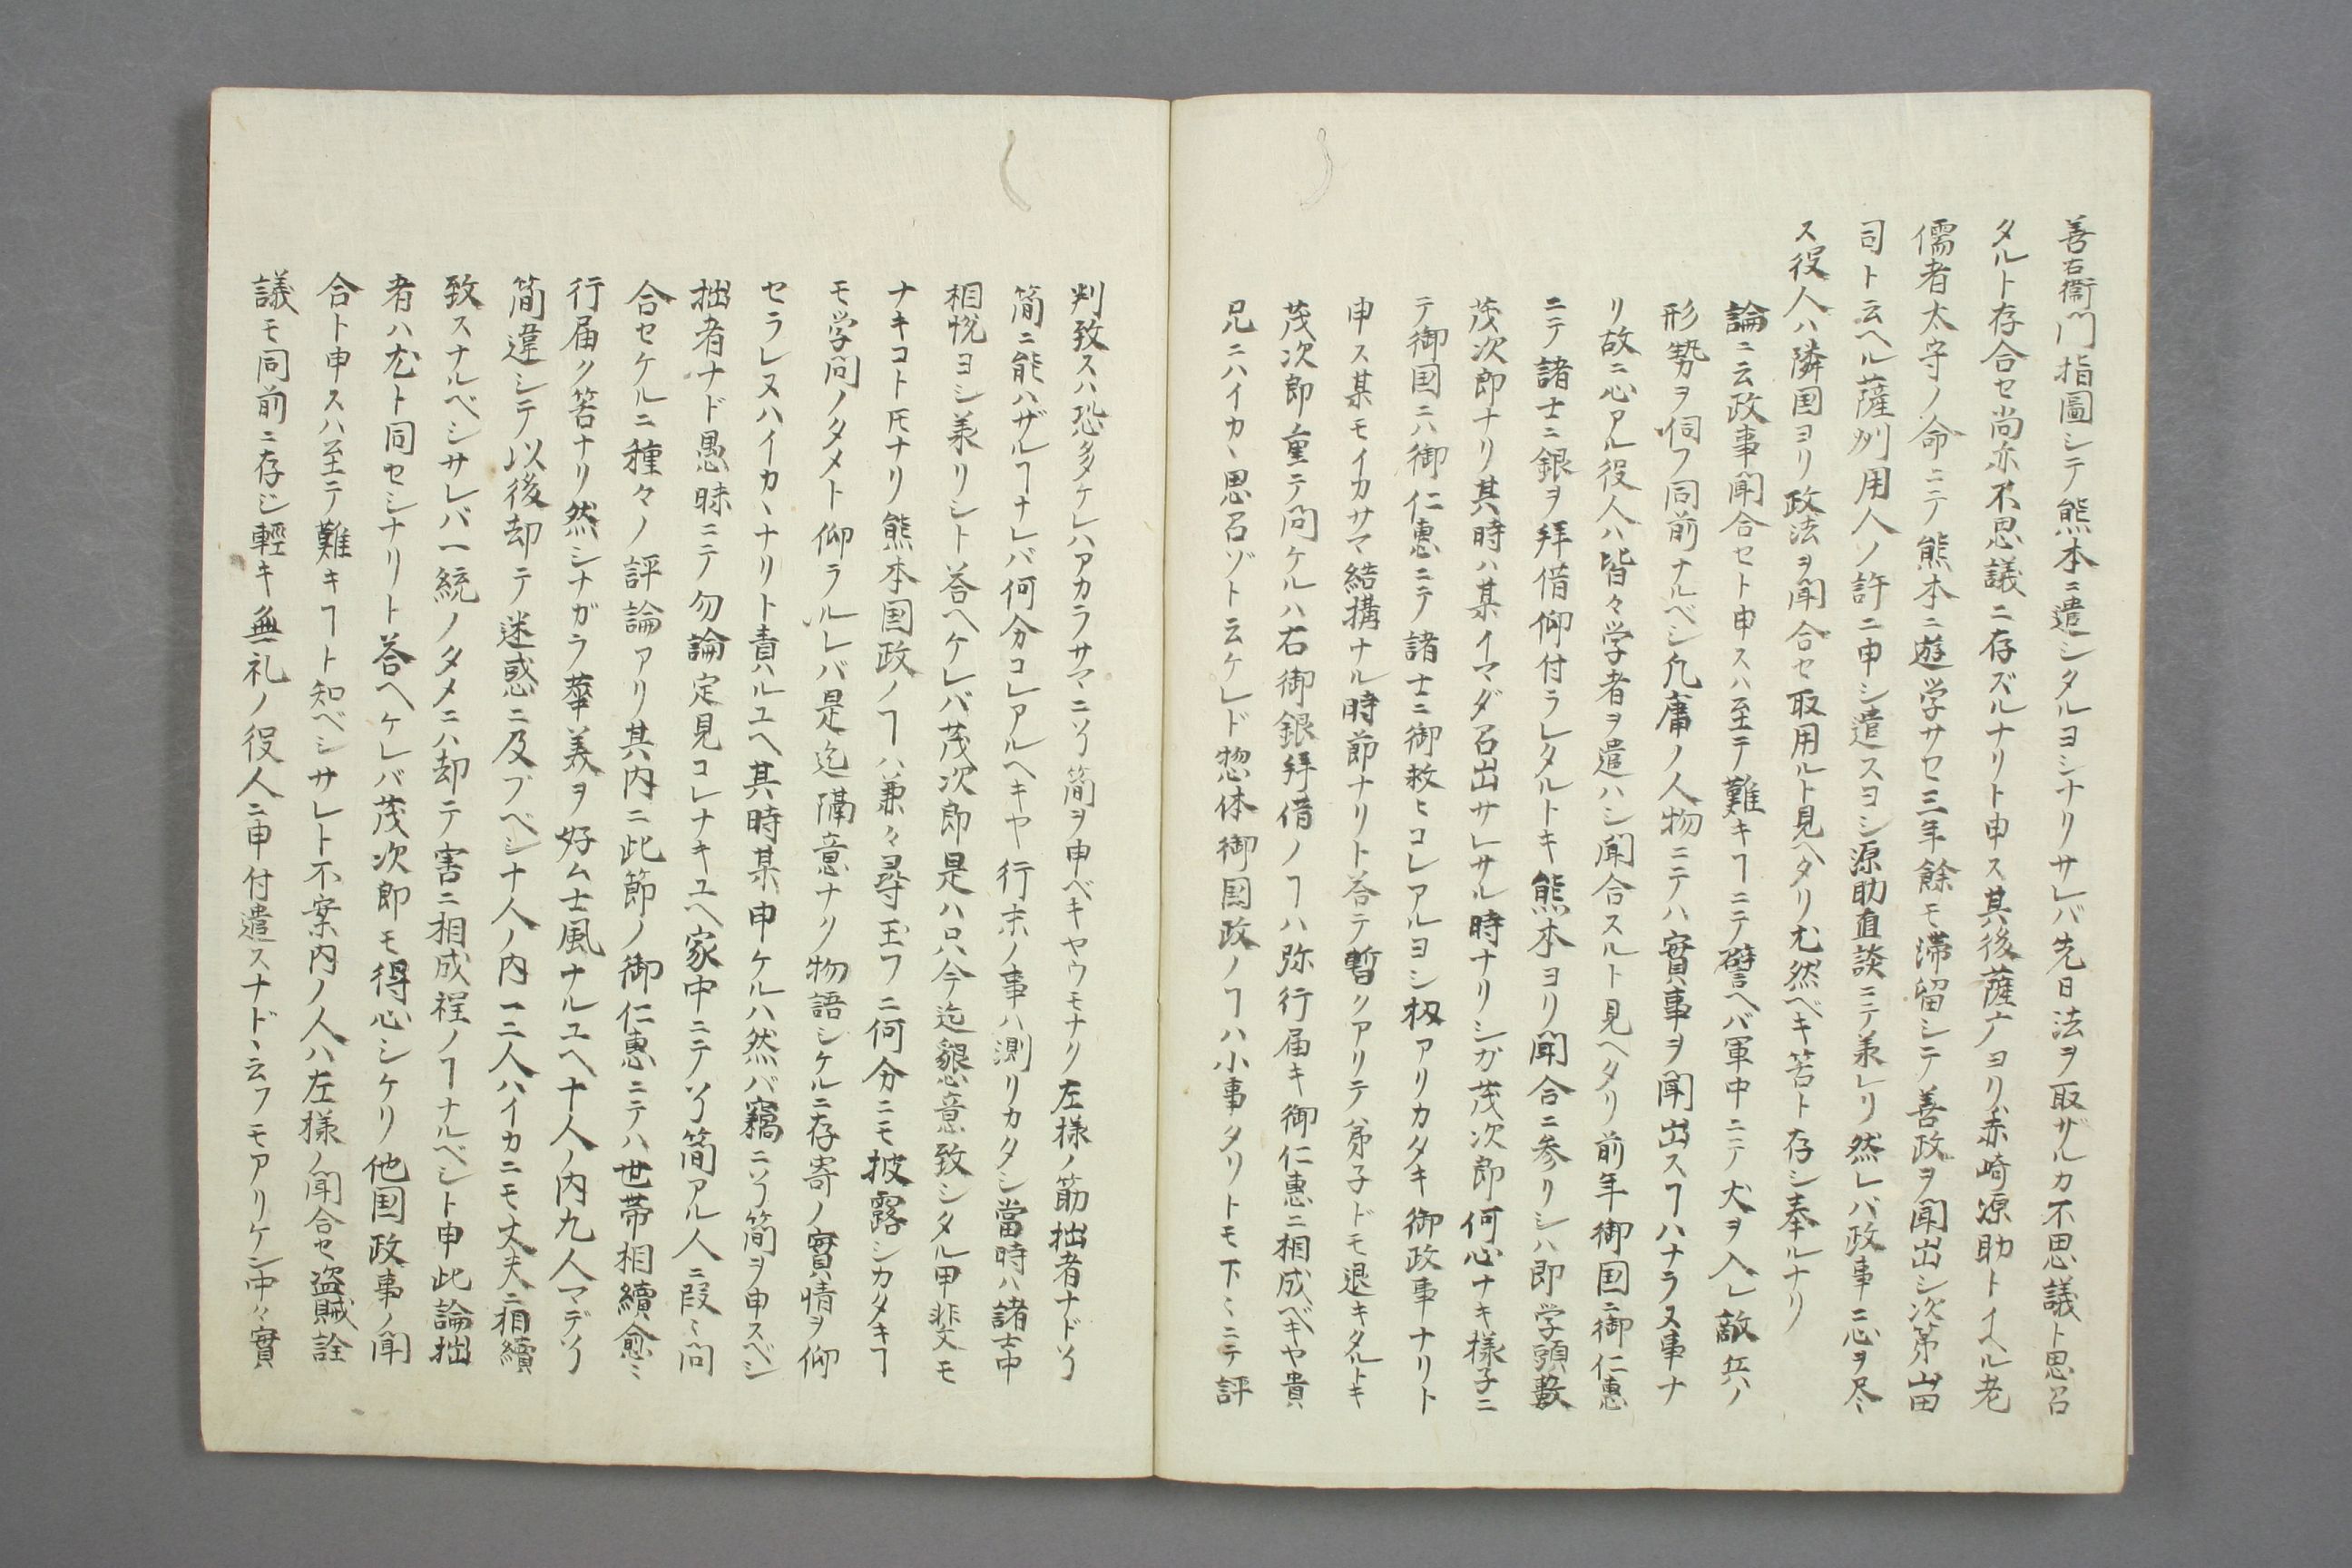 善右衛門指圖シテ熊本ニ遣シタルヨシナリサレバ先日法ヲ取ザルカ不思議ト思召
タルト存合セ尚亦不思議ニ存ズルナリト申ス其後薩广ヨリ赤崎源助トイヘル老
儒者太守ノ命ニテ熊本ニ遊学サセ三年餘モ滞留シテ善政ヲ聞出シ次第畄
司ト云ヘル薩州用人ノ許ニ申シ遣スヨシ源助直談ニテ承レリ然レバ政事ニ心ヲ尽
ス役人ハ隣国ヨリ政法ヲ聞合セ取用ルト見ヘタリ尤然ベキ筈ト存シ奉ルナリ
論ニ云政事聞合セト申スハ至テ難キヿニテ譬ヘバ軍中ニテ犬ヲ入レ敵兵ノ
形勢ヲ伺フ同前ナルベシ凡庸ノ人物ニテハ實事ヲ聞出スヿハナラヌ事ナ
リ故ニ心アル役人ハ皆々学者ヲ遣ハシ聞合スルト見ヘタリ前年御国ニ御仁惠
ニテ諸士ニ銀ヲ拜借仰付ラレタルトキ熊本ヨリ聞合ニ参リシハ即学頭藪
茂次郎ナリ其時ハ某イマダ召出サレサル時ナリシガ茂次郎何心ナキ様子ニ
テ御国ニハ御仁惠ニテ諸士ニ御救ヒコレアルヨシ扨アリカタキ御政事ナリト
申ス某モイカサマ結構ナル時節ナリト答テ暫クアリテ弟子ドモ退キタルトキ
茂次郎重テ問ケルハ右御銀拜借ノヿハ弥行届キ御仁惠ニ相成ベキヤ貴
兄ニハイカヽ思召ゾト云ケレド惣体御国政ノヿハ小事タリトモ下ミニテ評
判致スハ恐多ケレハアカラサマニソノ簡ヲ申ベキヤウモナリ左様ノ筋拙者ナドソノ
簡ニ能ハザルヿナレバ何分コレアルヘキヤ行末ノ事ハ測リカタシ當時ハ諸士中
相悦ヨシ承リシト答ヘケレバ茂次郎是ハ只今迄懇意致シタル甲斐モ
ナキコト𪜈ナリ熊本国政ノヿハ兼々尋玉フニ何分ニモ披露シカタキヿ
モ学問ノタメト仰ラルレバ是迄隔意ナク物語シケルニ存寄ノ實情ヲ仰
セラレヌハイカヽナリト責ハルユヘ其時某申ケルハ然バ竊ニソノ簡ヲ申スベシ
拙者ナド愚昧ニテ勿論定見コレナキユヘ家中ニテソノ簡アル人ニ段ミ問
合セケルニ種々ノ評論アリ其内ニ此節ノ御仁惠ニテハ世帯相續愈ミ
行届ク筈ナリ然シナガラ華美ヲ好ム士風ナルユヘ十人ノ内九人マデソノ
簡違シテ以後却テ迷惑ニ及ブベシ十人ノ内一二人ハイカニモ丈夫ニ相續
致スナルベシサレバ一統ノタメニハ却テ害ニ相成程ノヿナルベシト申此論拙
者ハ尤ト同セシナリト答ヘケレバ茂次郎モ得心シケリ他国政事ノ聞
合ト申スハ至テ難キヿト知ベシサレト不案内ノ人ハ左様ノ聞合セ盗賊詮
議モ同前ニ存ジ輕キ無礼ノ役人ニ申付遣スナドヽ云フモアリケン中々實